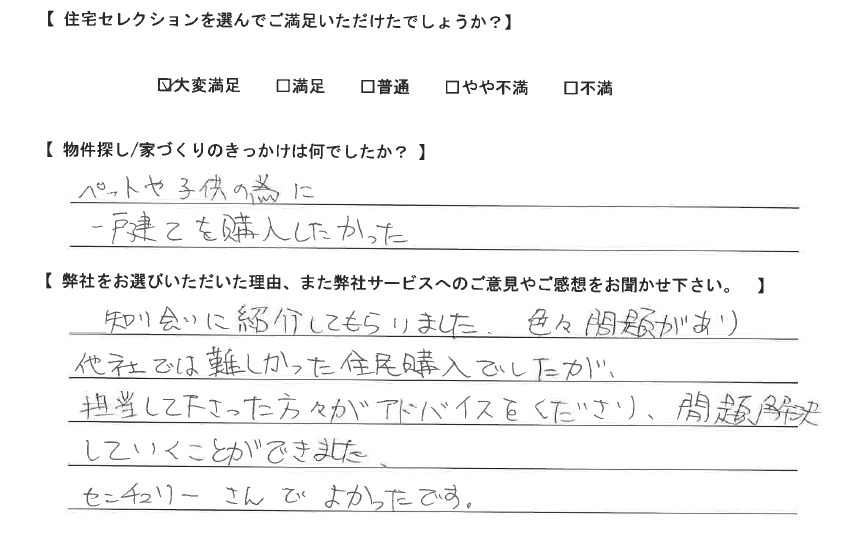 【 住宅セレクションを選んでご満足いただけたでしょうか？】
☑大変満足 □満足 □普通 □やや不満 □不満
【 物件探し/家づくりのきっかけは何でしたか？ 】
ペットや子供の為に
一戸建てを購入したかった
【 弊社をお選びいただいた理由、また弊社サービスへのご意見やご感想をお聞かせ下さい。 】
知り合いに紹介してもらいました、色々問題があり
他社では難しかった住民購入でしたが、
担当して下さった方々がアドバイスをくださり、問題解決
していくことができました、
センチュリーさんでよかったです。